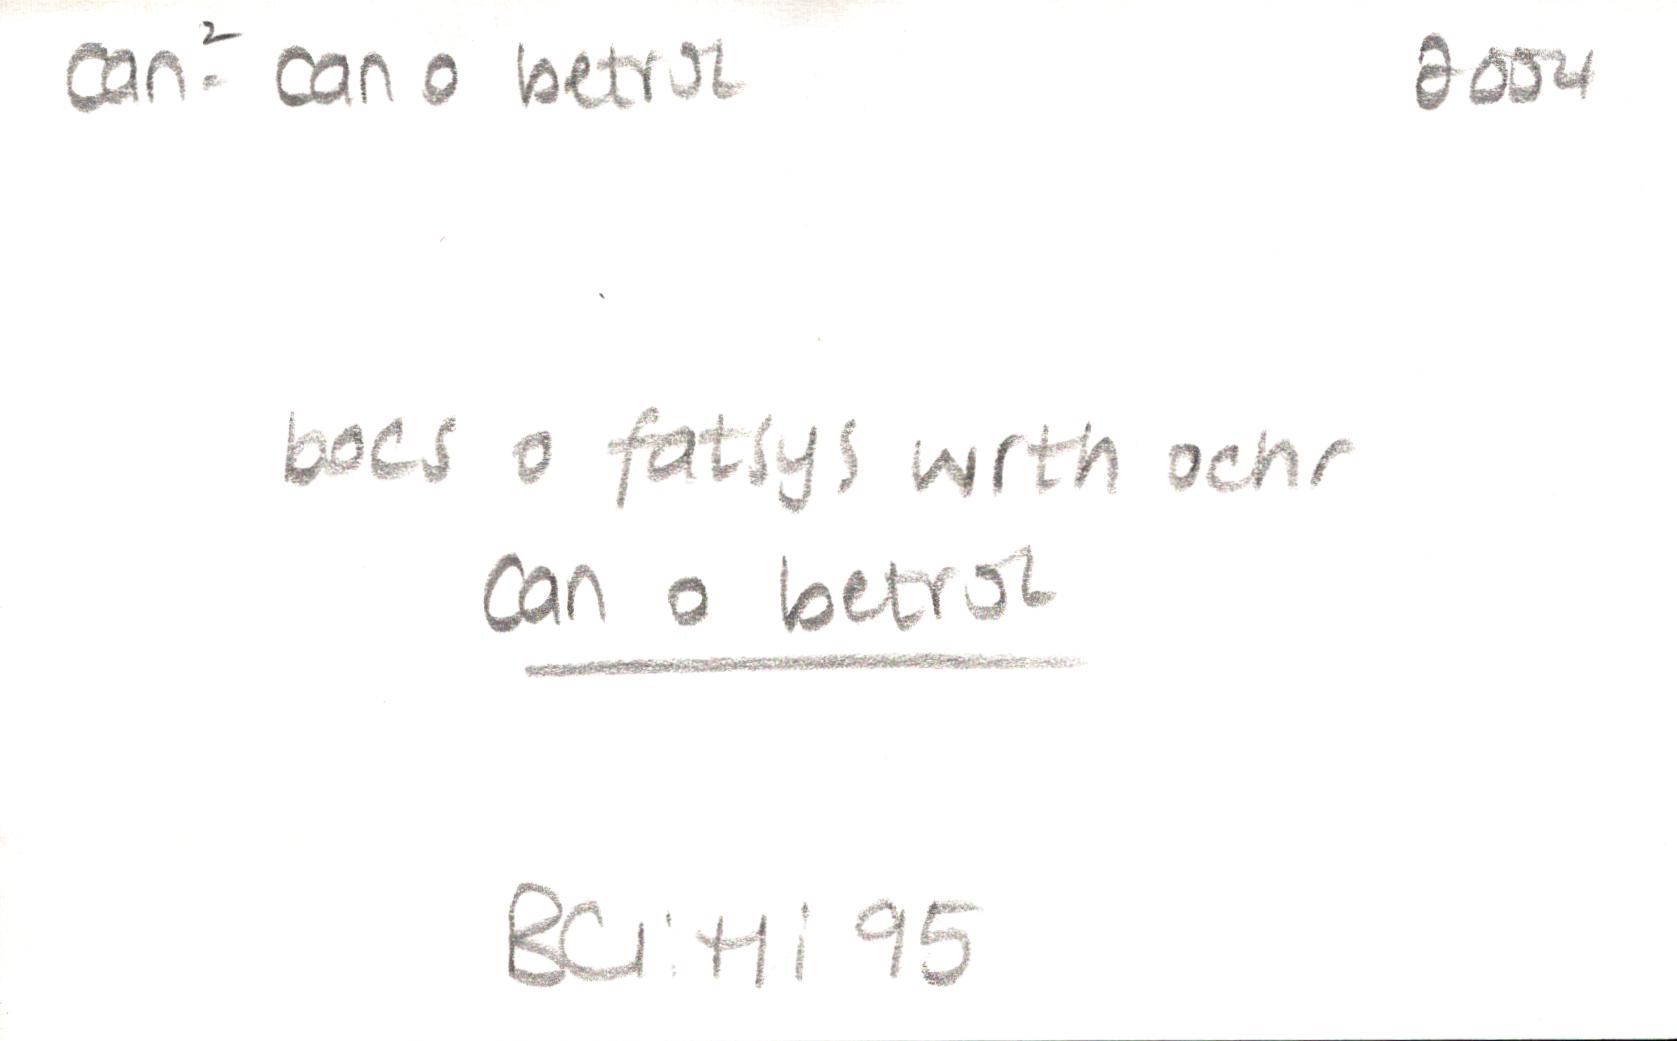 can² can o betrol 2004
bocs o fatsys wrth ochr
can o betrol
BCI:Hi 95